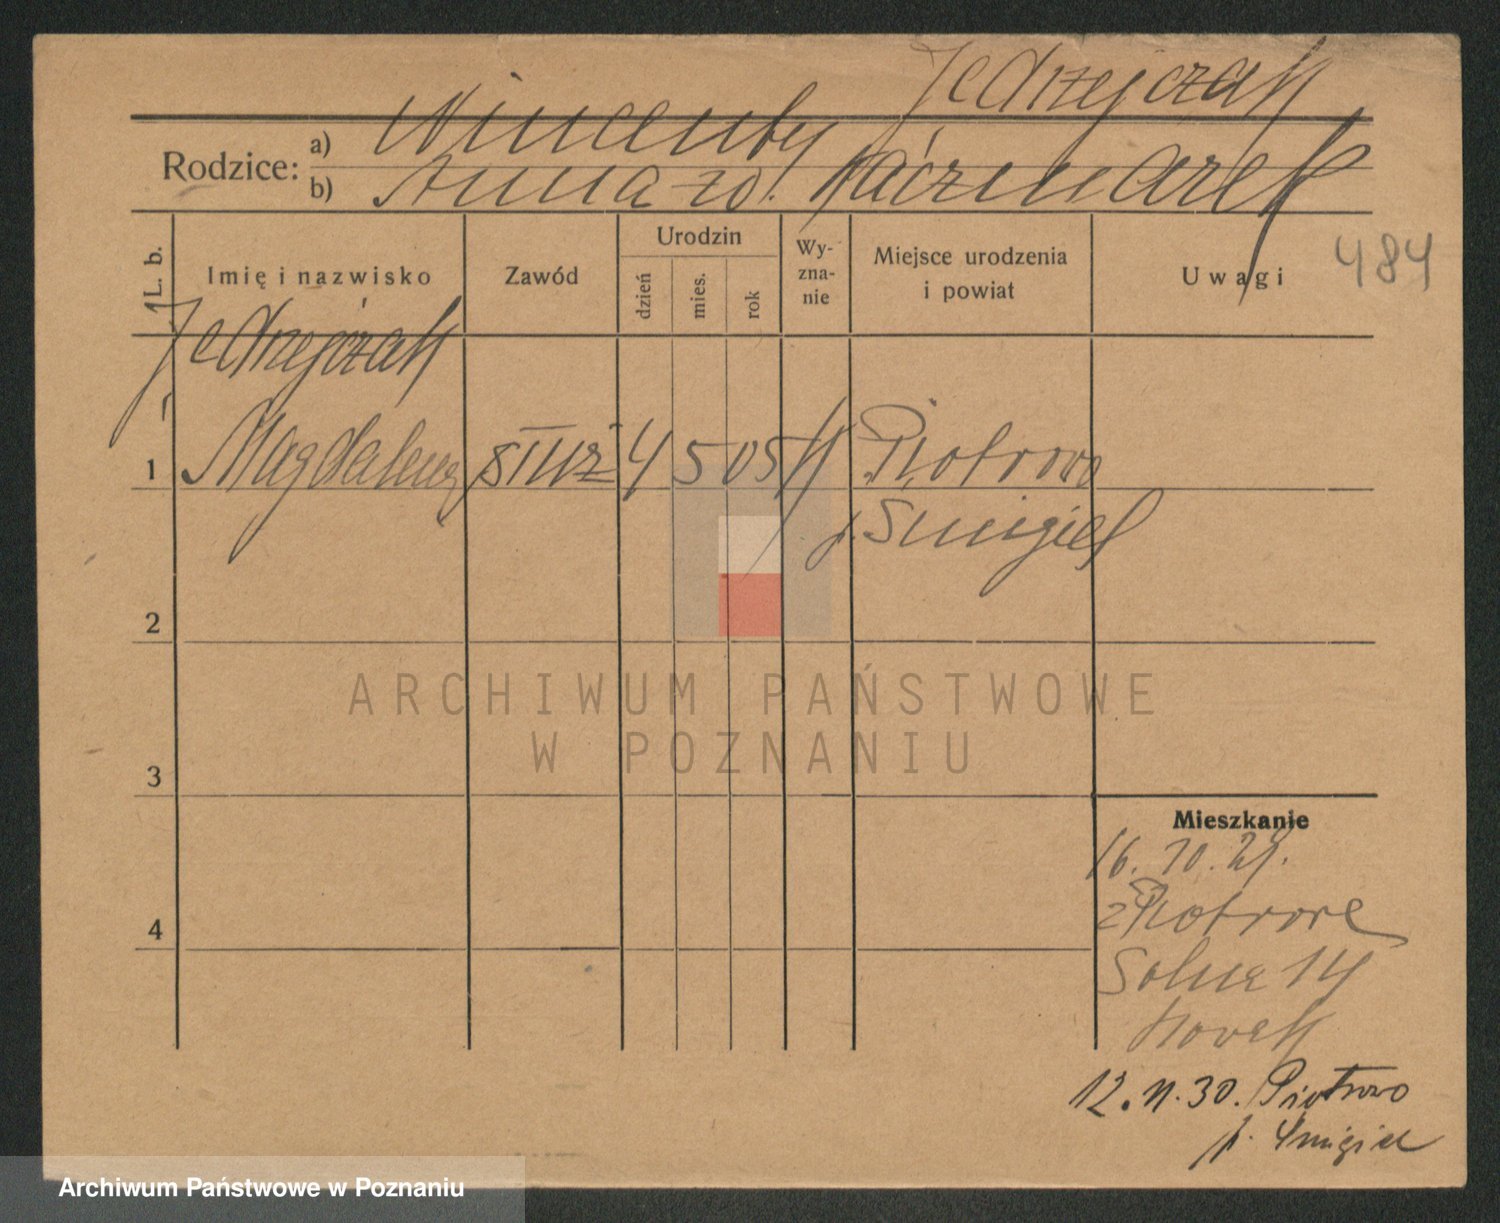 Jędrzejczak
Rodzice: a) Wincenty
b) Anna zd. Kaczmarek
484
L. b.
Imię i nazwisko
Zawód
Urodzin
dzień
mies.
rok
Wy-
zna-
nie
Miejsce urodzenia
i powiat
Uwagi
Jedrzejczak
1 Magdalena służ 4 5 05 K Piotrowo
p. Śmigiel
2
3
4
ARCHIWUM PAŃSTWOWE
W POZNANIU
Mieszkanie
16. 10. 29.
z Piotrowa
Solna 14
Nowak
12. 11. 30. Piotrowo
p. Śmigiel
Archiwum Państwowe w Poznaniu